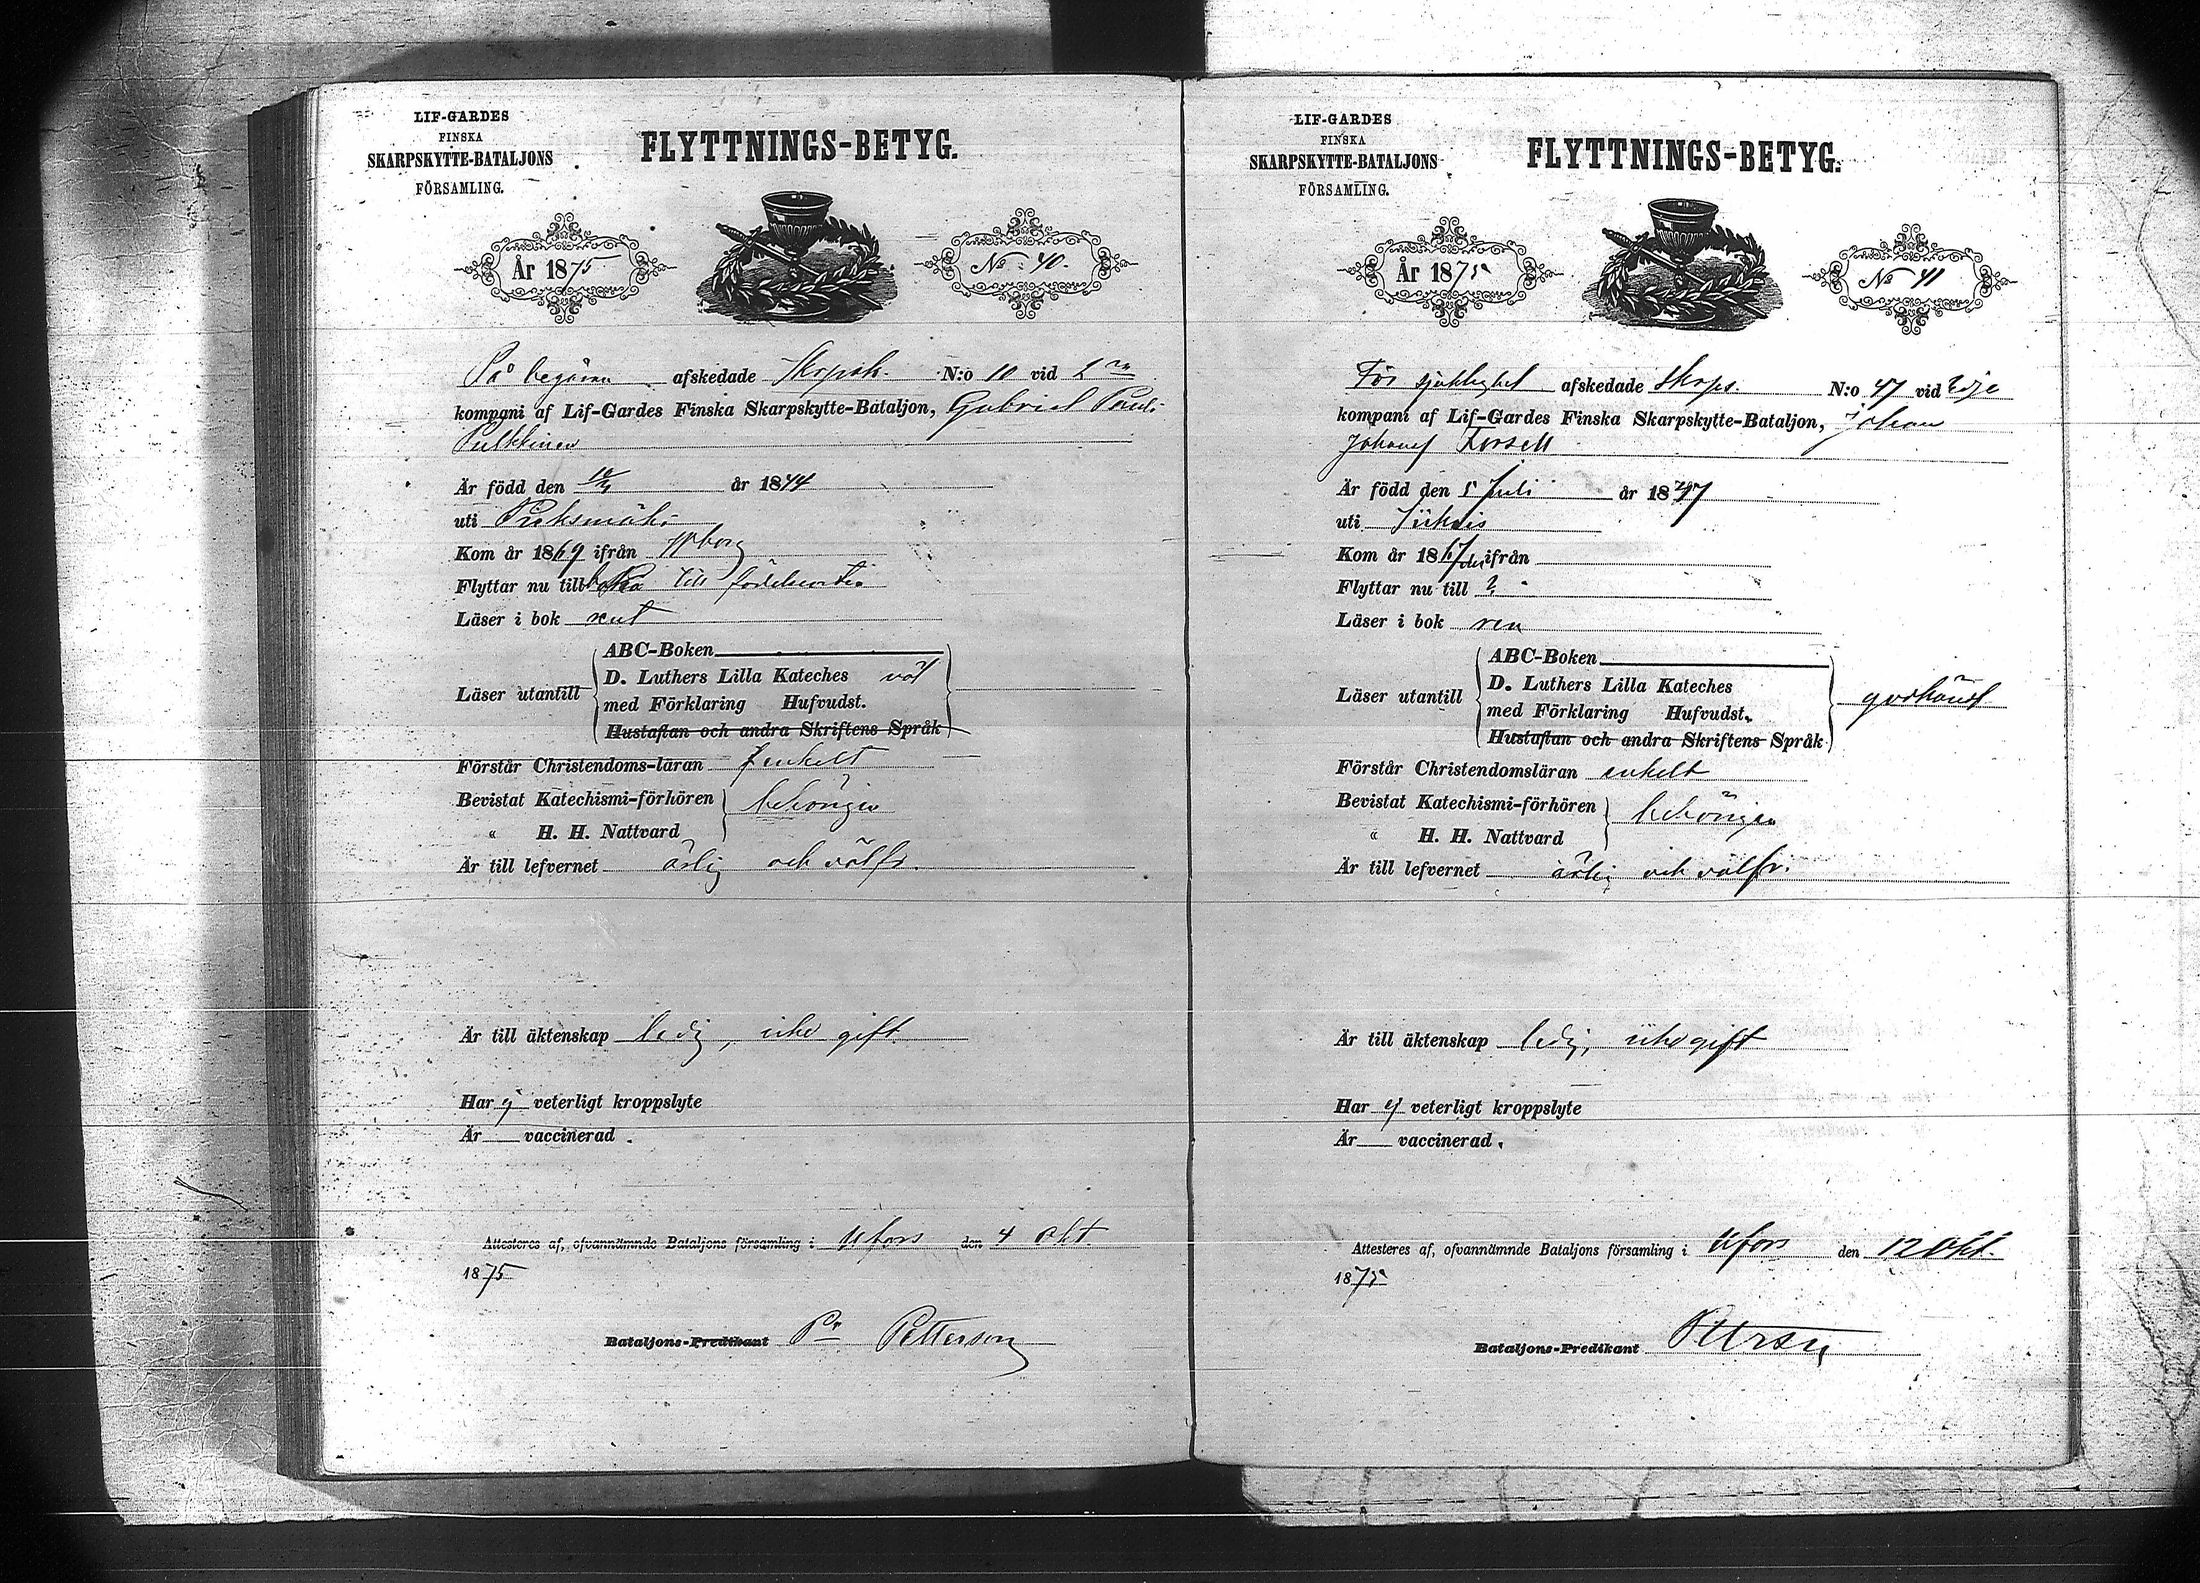 LIF-GARDES
FINSKA
SKARPSKYTTE-BATALJONS
FÖRSAMLING.
FLYTTNINGS-BETYG.
År 1875
No 40.
På begäran afskedade Skrpsk. N:o 10 vid 2
kompani af Lif-Gardes Finska Skarpskytte-Bataljon, Gabriel Paul:
Pulkkinen
Är född den år 1844
uti Pieksmäki
Kom år 1869 ifrån Wborg
Flyttar nu tillbaka till födelseorten
Läser i bok rent
ABC-Boken
Läser utantill D. Luthers Lilla Kateches väl
med Förklaring Hufvudst.
Hustaflan och andra Skriftens Språk
Förstår Christendoms-läran enkelt
Bevistat Katechismi-förhören behörigen
" H. H. Nattvard
Är till lefvernet ärlig och välfr.
Är till äktenskap ledig, icke gift
Har ej veterligt kroppslyte
Är vaccinerad.
Attesteres af, ofvannämnde Bataljons församling i Hfors den 4 Okt.
1875
Bataljons-Predikant Petterson
LIF-GARDES
FINSKA
SKARPSKYTTE-BATALJONS
FÖRSAMLING.
FLYTTNINGS-BETYG.
År 1875
No 41
För sjuklighet afskedade Skrps. N:o 47 vid 2dje
kompani af Lif-Gardes Finska Skarpskytte-Bataljon, Johan
Johansf Forsell
Är född den 5 Juli år 1847
uti
Kom år 1867 ifrån
Flyttar nu till ?
Läser i bok ren
ABC-Boken
Läser utantill D. Luthers Lilla Kateches
med Förklaring Hufvudst. godkändt
Hustaflan och andra Skriftens Språk
Förstår Christendomsläran enkelt
Bevistat Katechismi-förhören behörigen
" H. H. Nattvard
Är till lefvernet ärlig och välfr.
Är till äktenskap ledig, icke gift
Har ej veterligt kroppslyte
Är vaccinerad.
Attesteres af, ofvannämnde Bataljons församling i Hfors den 12 Okt.
1875
Bataljons-Predikant